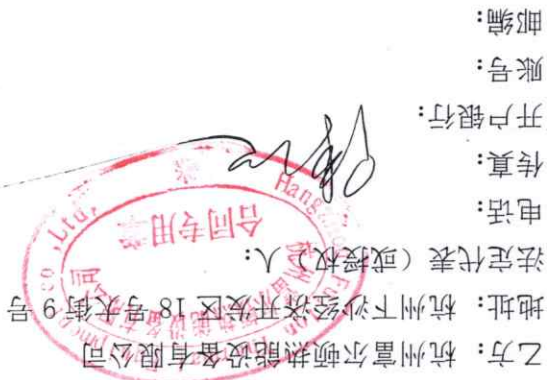 乙方：杭州富尔顿热能设备有限公司
地址：杭州下沙经济开发区18号大街9号
法定代表（或授权）人：
电话：
传真：
开户银行：
账号：
邮编：
合同专用章
Hangzhou Fulton
Co., Ltd.